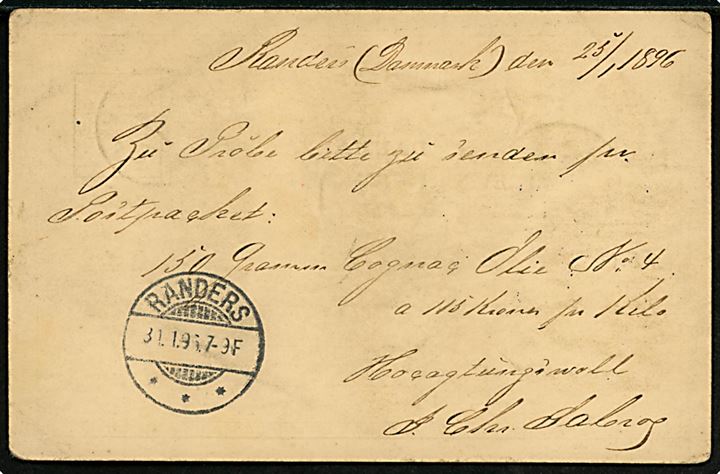 Randers (Danmark) den 25/1 1896
Zu Pröbe bitte zu senden pr.
Postpacket:
150 Gramm Cognac Olie No. 4
a 115 Kroner pr Kilo
Hocagtungswoll
J. Chr.
RANDERS
31.1.96.7-9F